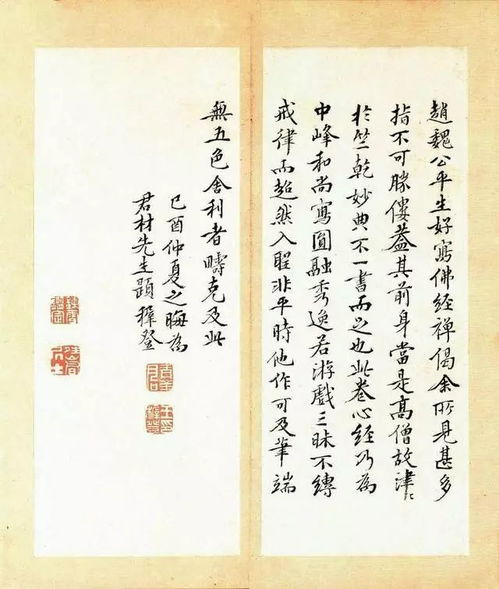 趙魏公平生好寫佛經禪偈余所見甚多
指不可勝僂葢其前身當是高僧故津〻
於竺乾妙典不一書而足也此卷心經乃為
中峰和尚寫圓融秀逸若游戲三昧不縛
戒律而超然入聖非平時他作可及筆端
無五色舍利者疇克及此
己酉仲夏之晦為
君材先生題穉登